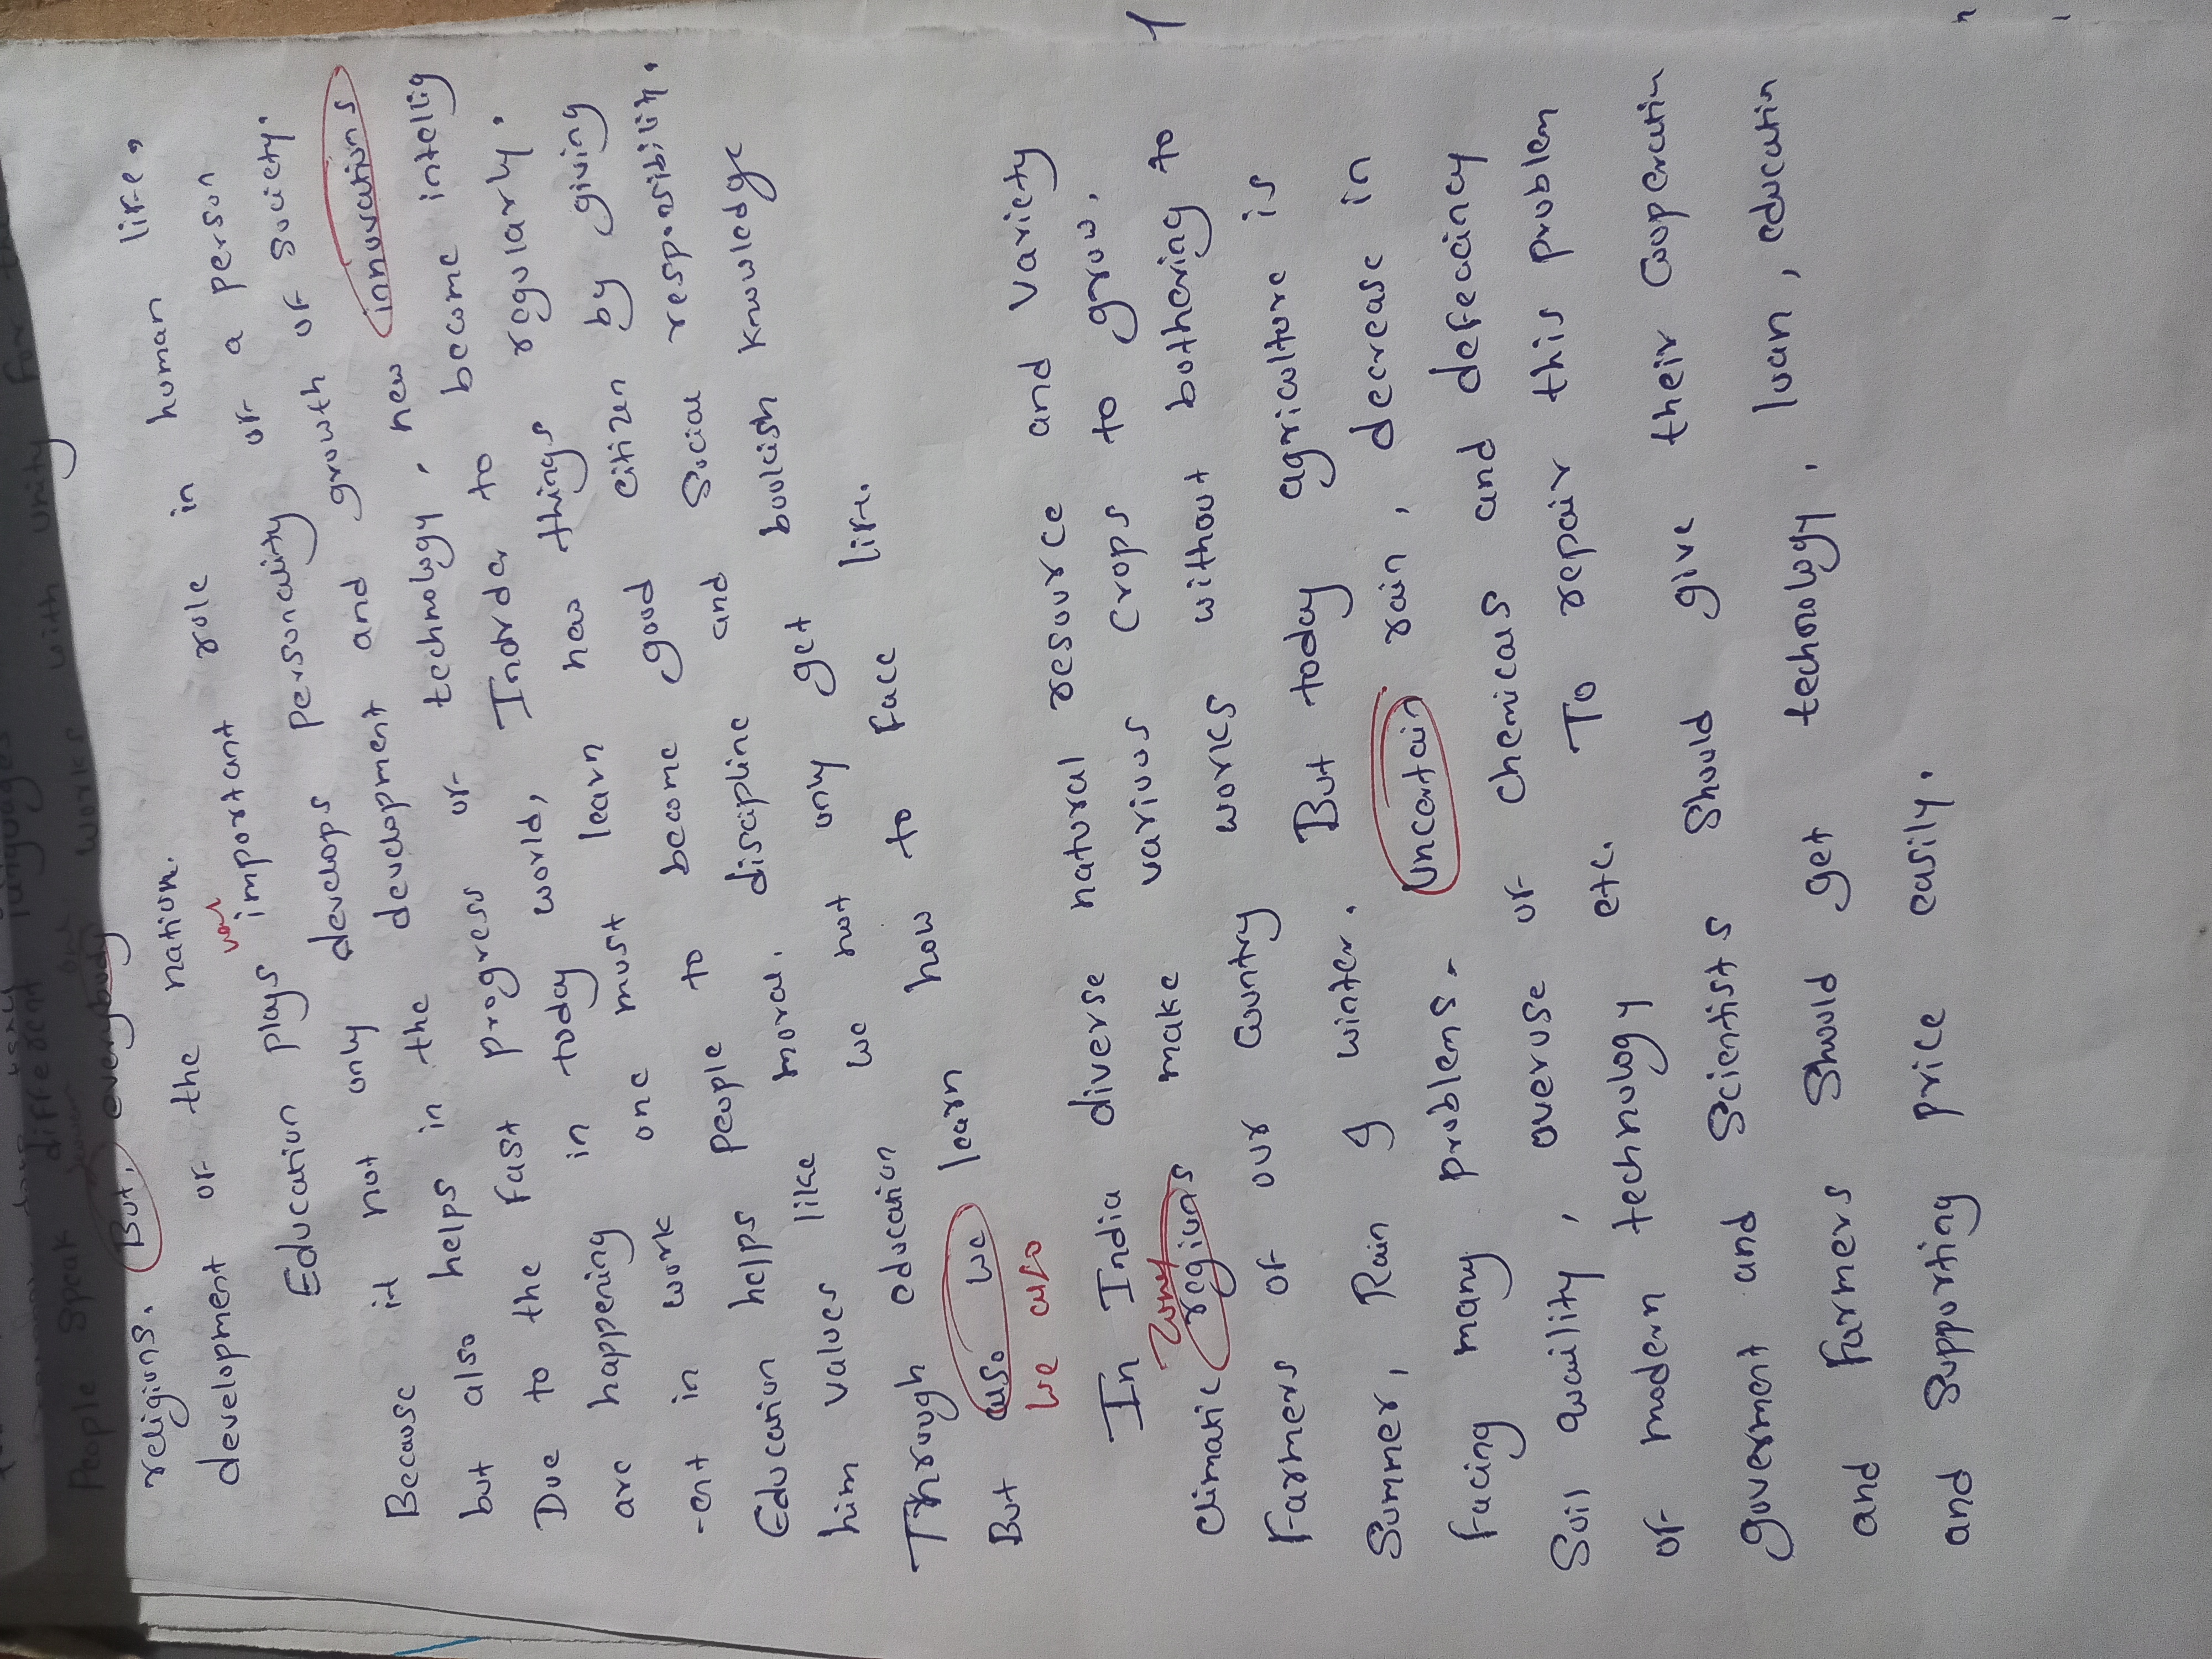 People speak different languages
religions. But, everybody works with unity for the
development of the nation.
Education plays important role in human life,
Because it not only develops personality of a person
but also helps in the development and growth of society.
Due to the fast progress of technology, new innovations
are happening in today world, Inorder to become intellig
-ent in work one must learn new things regularly.
Education helps people to become good citizen by giving
him values like moral, discipline and social responsibility.
Through education we not only get bookish knowledge
But also we learn how to face life.
we also
In India diverse natural resource and variety
zones
climatic regions make various crops to grow.
Farmers of our country works without bothering to
Summer, Rain & winter. But today agriculture is
facing many problems - Uncertain rain, decrease in
Soil quality, overuse of chemicals and defeciency
of modern technology etc. To repair this problem
government and Scientists Should give their cooperation
and Farmers Should get technology, loan, education
and Supporting price easily.